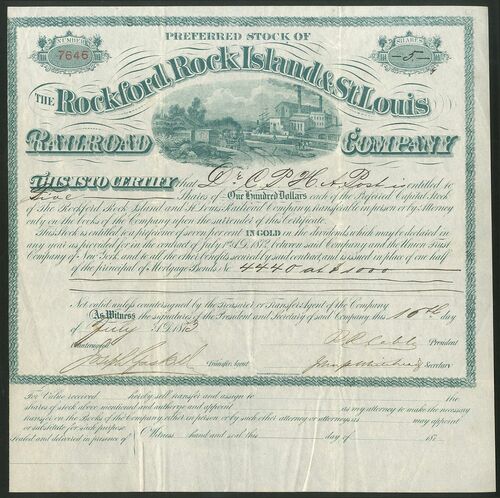 PREFERRED STOCK OF
NUMBER
7646
SHARES
5
THE Rockford, Rock Island & St. Louis
RAILROAD COMPANY
THIS IS TO CERTIFY that Dr C. P. H. A. Post is entitled to
Five Shares of One Hundred Dollars each of the Preferred Capital Stock
of The Rockford, Rock Island and St. Louis Railroad Company transferable in person or by Attorney
only on the Books of the Company upon the surrender of this Certificate.
This Stock is entitled to a preference of seven per cent IN GOLD in the dividends which may be declared in
any year as provided for in the contract of July 1st A.D. 1872, between said Company and the Union Trust
Company of New York, and to all the other benefits secured by said contract, and is issued in place of one half
of the principal of Mortgage Bonds No. 4440 at $1000
Not valid unless countersigned by the Treasurer or Transfer Agent of the Company
As Witness the signatures of the President and Secretary of said Company this 10th day
of July A.D. 1873
Countersigned President
Transfer Agent Secretary
For Value received hereby sell, transfer and assign to the
shares of stock above mentioned and authorize and appoint as my attorney to make the necessary
transfer on the Books of the Company, either in person or by such other attorney or attorneys as may appoint
or substitute for such purpose. Witness hand and seal this day of 187
Sealed and delivered in presence of